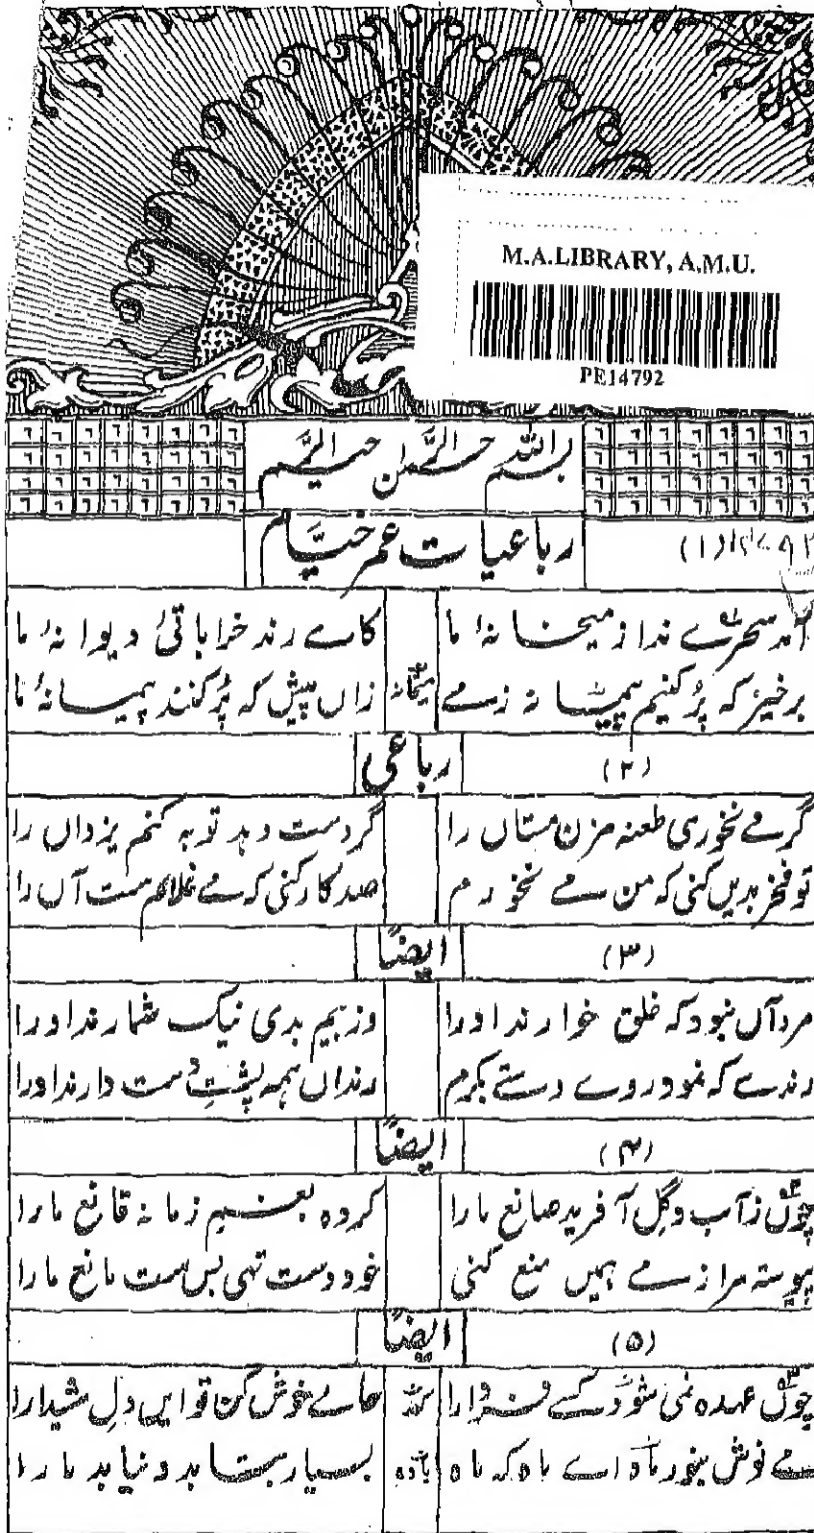 M.A.LIBRARY, A.M.U.
PE14792
بسم اللہ الرحمٰن الرحیم
رباعیات عمر خیّام
(۱)
آمد سحرے ندا ز میخانۂ ما کاے رند خراباتیٔ و دیوانۂ ما
برخیز کہ پُر کنیم پیمانہ ز مے زاں پیش کہ پُر کنند پیمانۂ ما
(۲) رباعی
گر مے نخوری طعنہ مزن مستاں را گر دست دہد توبہ کنم یزداں را
تو فخر بدیں کنی کہ من مے نخورم صد کار کنی کہ مے غلام ست آں را
(۳) ایضاً
مرد آں نبود کہ خلق خوارند اورا وز بیم بدی نیک شمارند اورا
رندے کہ نمود روے دستے بکرم رنداں ہمہ پشتِ دست دارند اورا
(۴) ایضاً
چوں ز آب و گِل آفرید صانع ما را کردہ بغم زمانہ قانع ما را
پیوستہ مرا ز مے ہمیں منع کنی خود دست تہی بس ست مانع ما را
(۵) ایضاً
چوں عہدہ نمی شود کسے فردا را حالے خوش کن تو ایں دلِ شیدا را
مے نوش بنور ماہ اے ماہ کہ ماہ بسیار بتابد و نیابد ما را